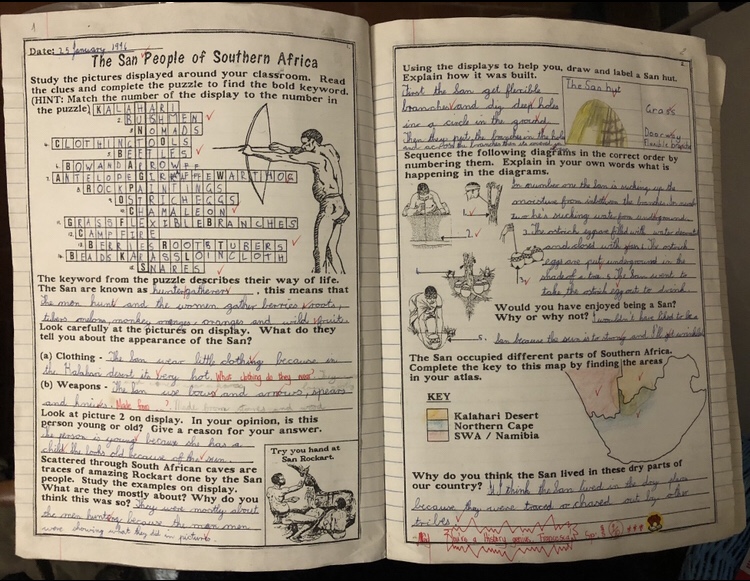 1
Date: 25 January 1996
The San People of Southern Africa
Study the pictures displayed around your classroom. Read
the clues and complete the puzzle to find the bold keyword.
(HINT: Match the number of the display to the number in
the puzzle)
KALAHARI
BUSHMEN
NOMADS
CLOTHING TOOLS
BEETLES
BOW AND ARROW
ANTELOPE GIRAFFE WARTHOG
ROCK PAINTINGS
OSTRICH EGGS
CHAMALEON
GRASS FLEXIBLE BRANCHES
CAMPFIRE
BERRIES ROOTS TUBERS
BEADS KAROSS LOINCLOTH
SNARES
The keyword from the puzzle describes their way of life.
The San are known as huntergatherers, this means that
the men hunt and the women gather berries, roots,
oranges and wild fruits.
Look carefully at the pictures on display. What do they
tell you about the appearance of the San?
(a) Clothing - The San wear little clothing because in
the Kalahari desert its very hot. What clothing do they wear?
(b) Weapons - The San use bows and arrows, spears
and knives. Made from ?
Look at picture 2 on display. In your opinion, is this
person young or old? Give a reason for your answer.
The person is young because she has a
child she looks old because of the sun.
Scattered through South African caves are
traces of amazing Rockart done by the San
people. Study the examples on display.
What are they mostly about? Why do you
think this was so? They were mostly about
the men hunting because the men
were showing what they did in pictures.
Try you hand at
San Rockart.
2
Using the displays to help you, draw and label a San hut.
Explain how it was built.
First the San get flexible
branches and dig deep holes
in a circle in the ground.
Then they put the branches in the hole
The San hut
Grass
Doorway
flexible branches
Sequence the following diagrams in the correct order by
numbering them. Explain in your own words what is
happening in the diagrams.
In number one the San is sucking up the
moisture from
two he's sucking water from underground.
3 The ostrich eggs are filled with water
and closed with
eggs are put underground in the
shade of a tree. 5 The San went to
take the ostrich egg out to drink.
1
2.
3.
5.
Would you have enjoyed being a San?
Why or why not? I wouldn't have liked to be a
San because the sun is to strong and I'll get wrinkled
The San occupied different parts of Southern Africa.
Complete the key to this map by finding the areas
in your atlas.
KEY
Kalahari Desert
Northern Cape
SWA / Namibia
Why do you think the San lived in these dry parts of
our country? I think the San lived in the dry
because they were traced or chased out by other
tribes
You're a history genius, Francesca!